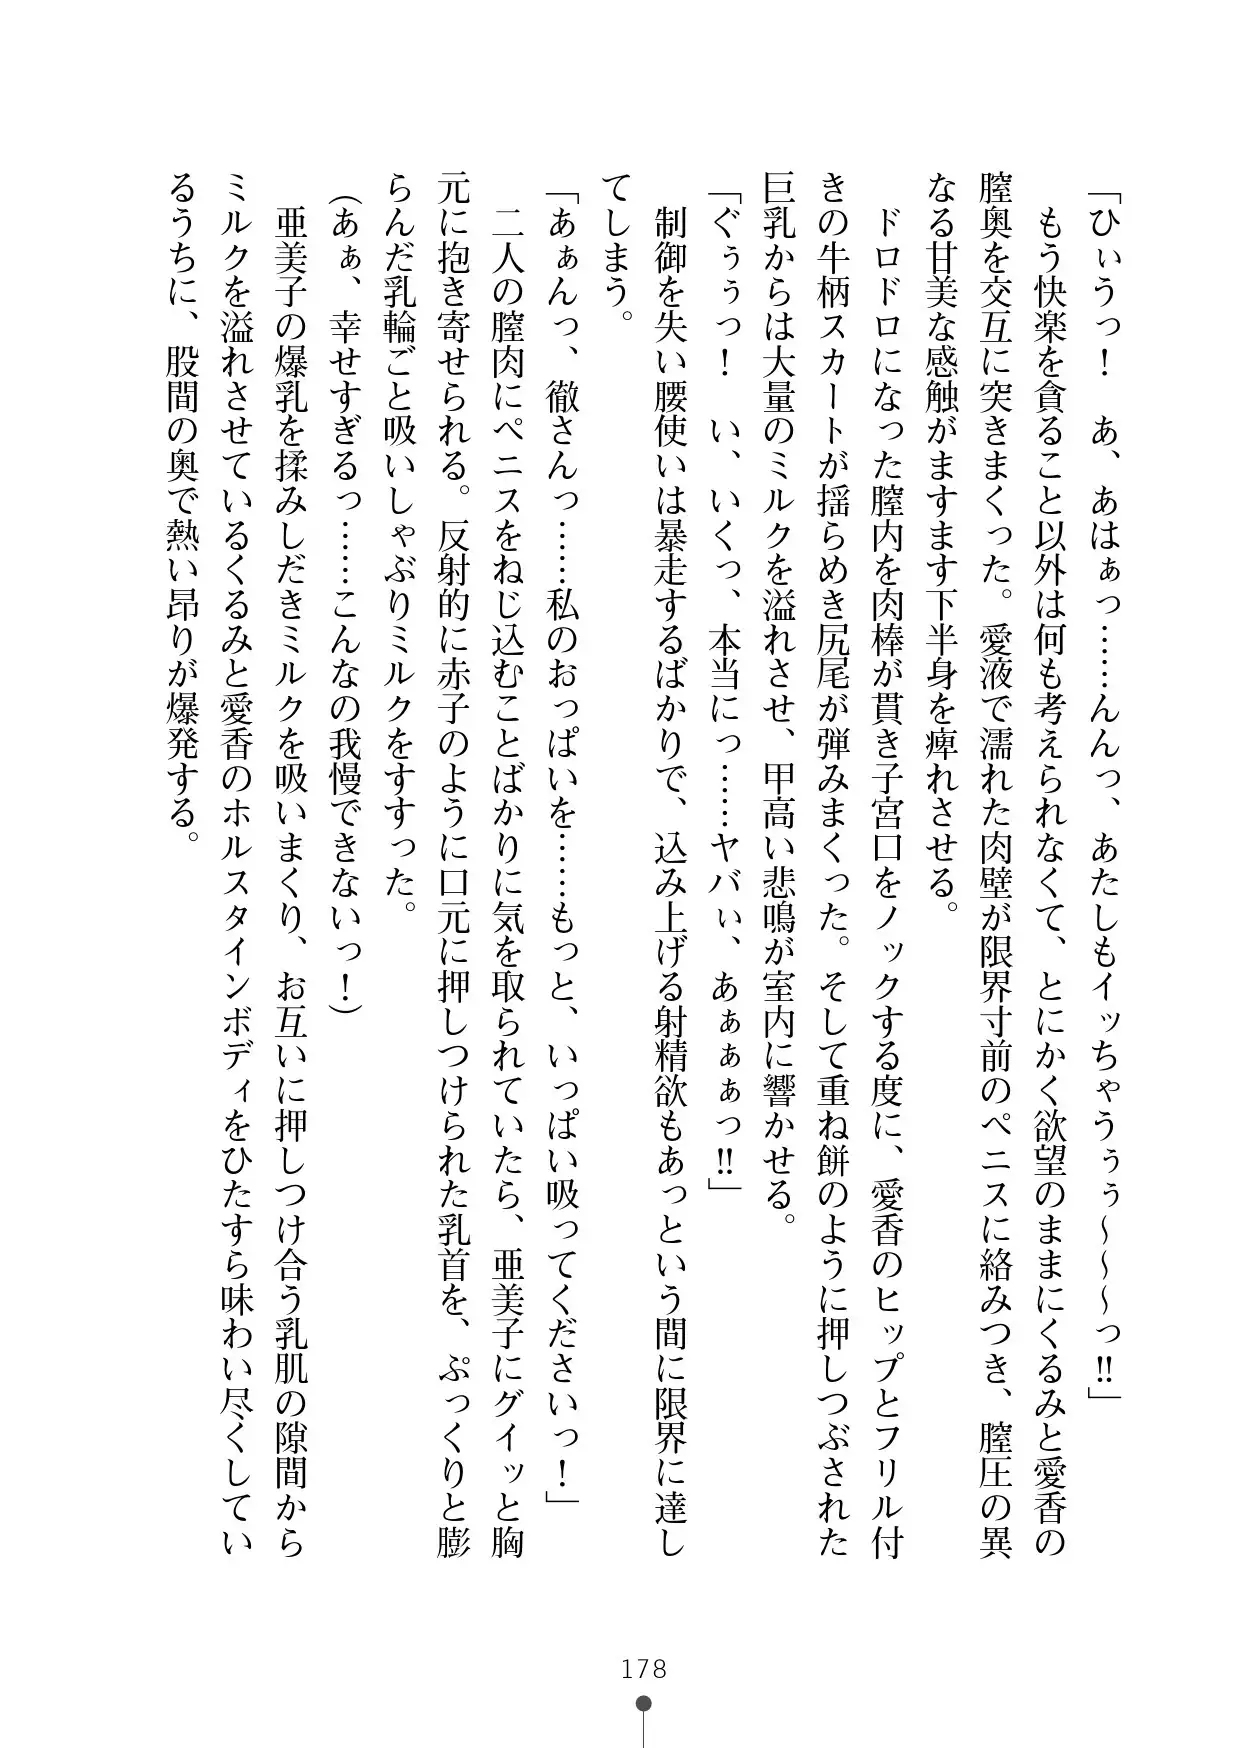 「ひぃうっ！　あ、あはぁっ……んんっ、あたしもイッちゃうぅぅ～～～っ‼」
　もう快楽を貪ること以外は何も考えられなくて、とにかく欲望のままにくるみと愛香の
膣奥を交互に突きまくった。愛液で濡れた肉壁が限界寸前のペニスに絡みつき、膣圧の異
なる甘美な感触がますます下半身を痺れさせる。
　ドロドロになった膣内を肉棒が貫き子宮口をノックする度に、愛香のヒップとフリル付
きの牛柄スカートが揺らめき尻尾が弾みまくった。そして重ね餅のように押しつぶされた
巨乳からは大量のミルクを溢れさせ、甲高い悲鳴が室内に響かせる。
「ぐぅぅっ！　い、いくっ、本当にっ……ヤバぃ、あぁぁぁっ‼」
　制御を失い腰使いは暴走するばかりで、込み上げる射精欲もあっという間に限界に達し
てしまう。
「あぁんっ、徹さんっ……私のおっぱいを……もっと、いっぱい吸ってくださいっ！」
　二人の膣肉にペニスをねじ込むことばかりに気を取られていたら、亜美子にグイッと胸
元に抱き寄せられる。反射的に赤子のように口元に押しつけられた乳首を、ぷっくりと膨
らんだ乳輪ごと吸いしゃぶりミルクをすすった。
（あぁ、幸せすぎるっ……こんなの我慢できないっ！）
　亜美子の爆乳を揉みしだきミルクを吸いまくり、お互いに押しつけ合う乳肌の隙間から
ミルクを溢れさせているくるみと愛香のホルスタインボディをひたすら味わい尽くしてい
るうちに、股間の奥で熱い昂りが爆発する。
178